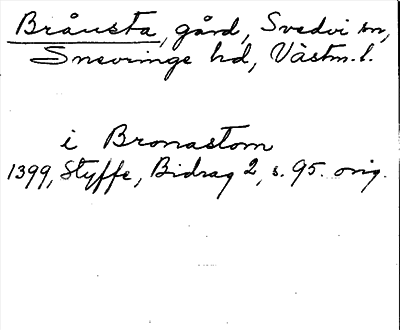 Bråusta, gård, Svedvi sn,
Snevringe hd, Västm. l.
i Bronastom
1399, Styffe, Bidrag 2, s. 95. orig.